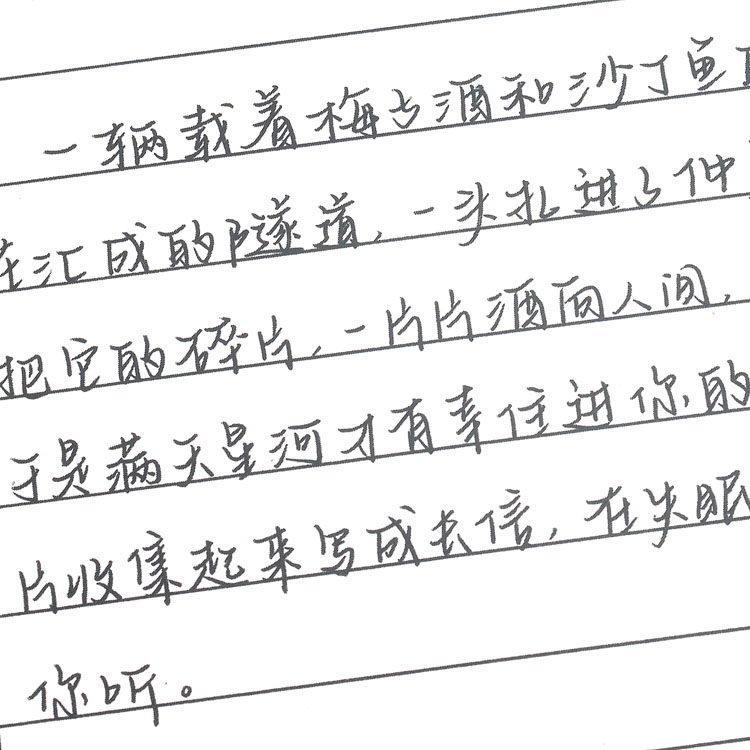 一辆载着梅子酒和沙丁鱼
在汇成的隧道，一头扎进了仲
把它的碎片，一片片洒向人间，
于是满天星河才有幸住进你的
片收集起来写成长信，在失眠
你听。